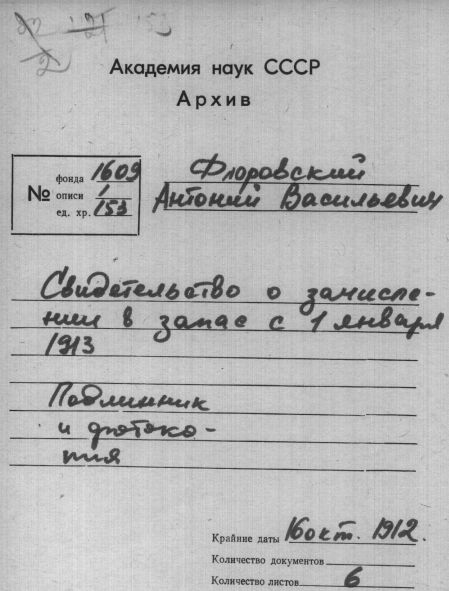 153
Академия наук СССР
Архив
№
фонда 1609
описи 1
ед. хр. 153
Флоровский
Антоний Васильевич
Свидетельство о зачисле-
нии в запас с 1 января
1913
Подлинник
и фотоко-
пия
Крайние даты 16 окт. 1912.
Количество документов
Количество листов 6